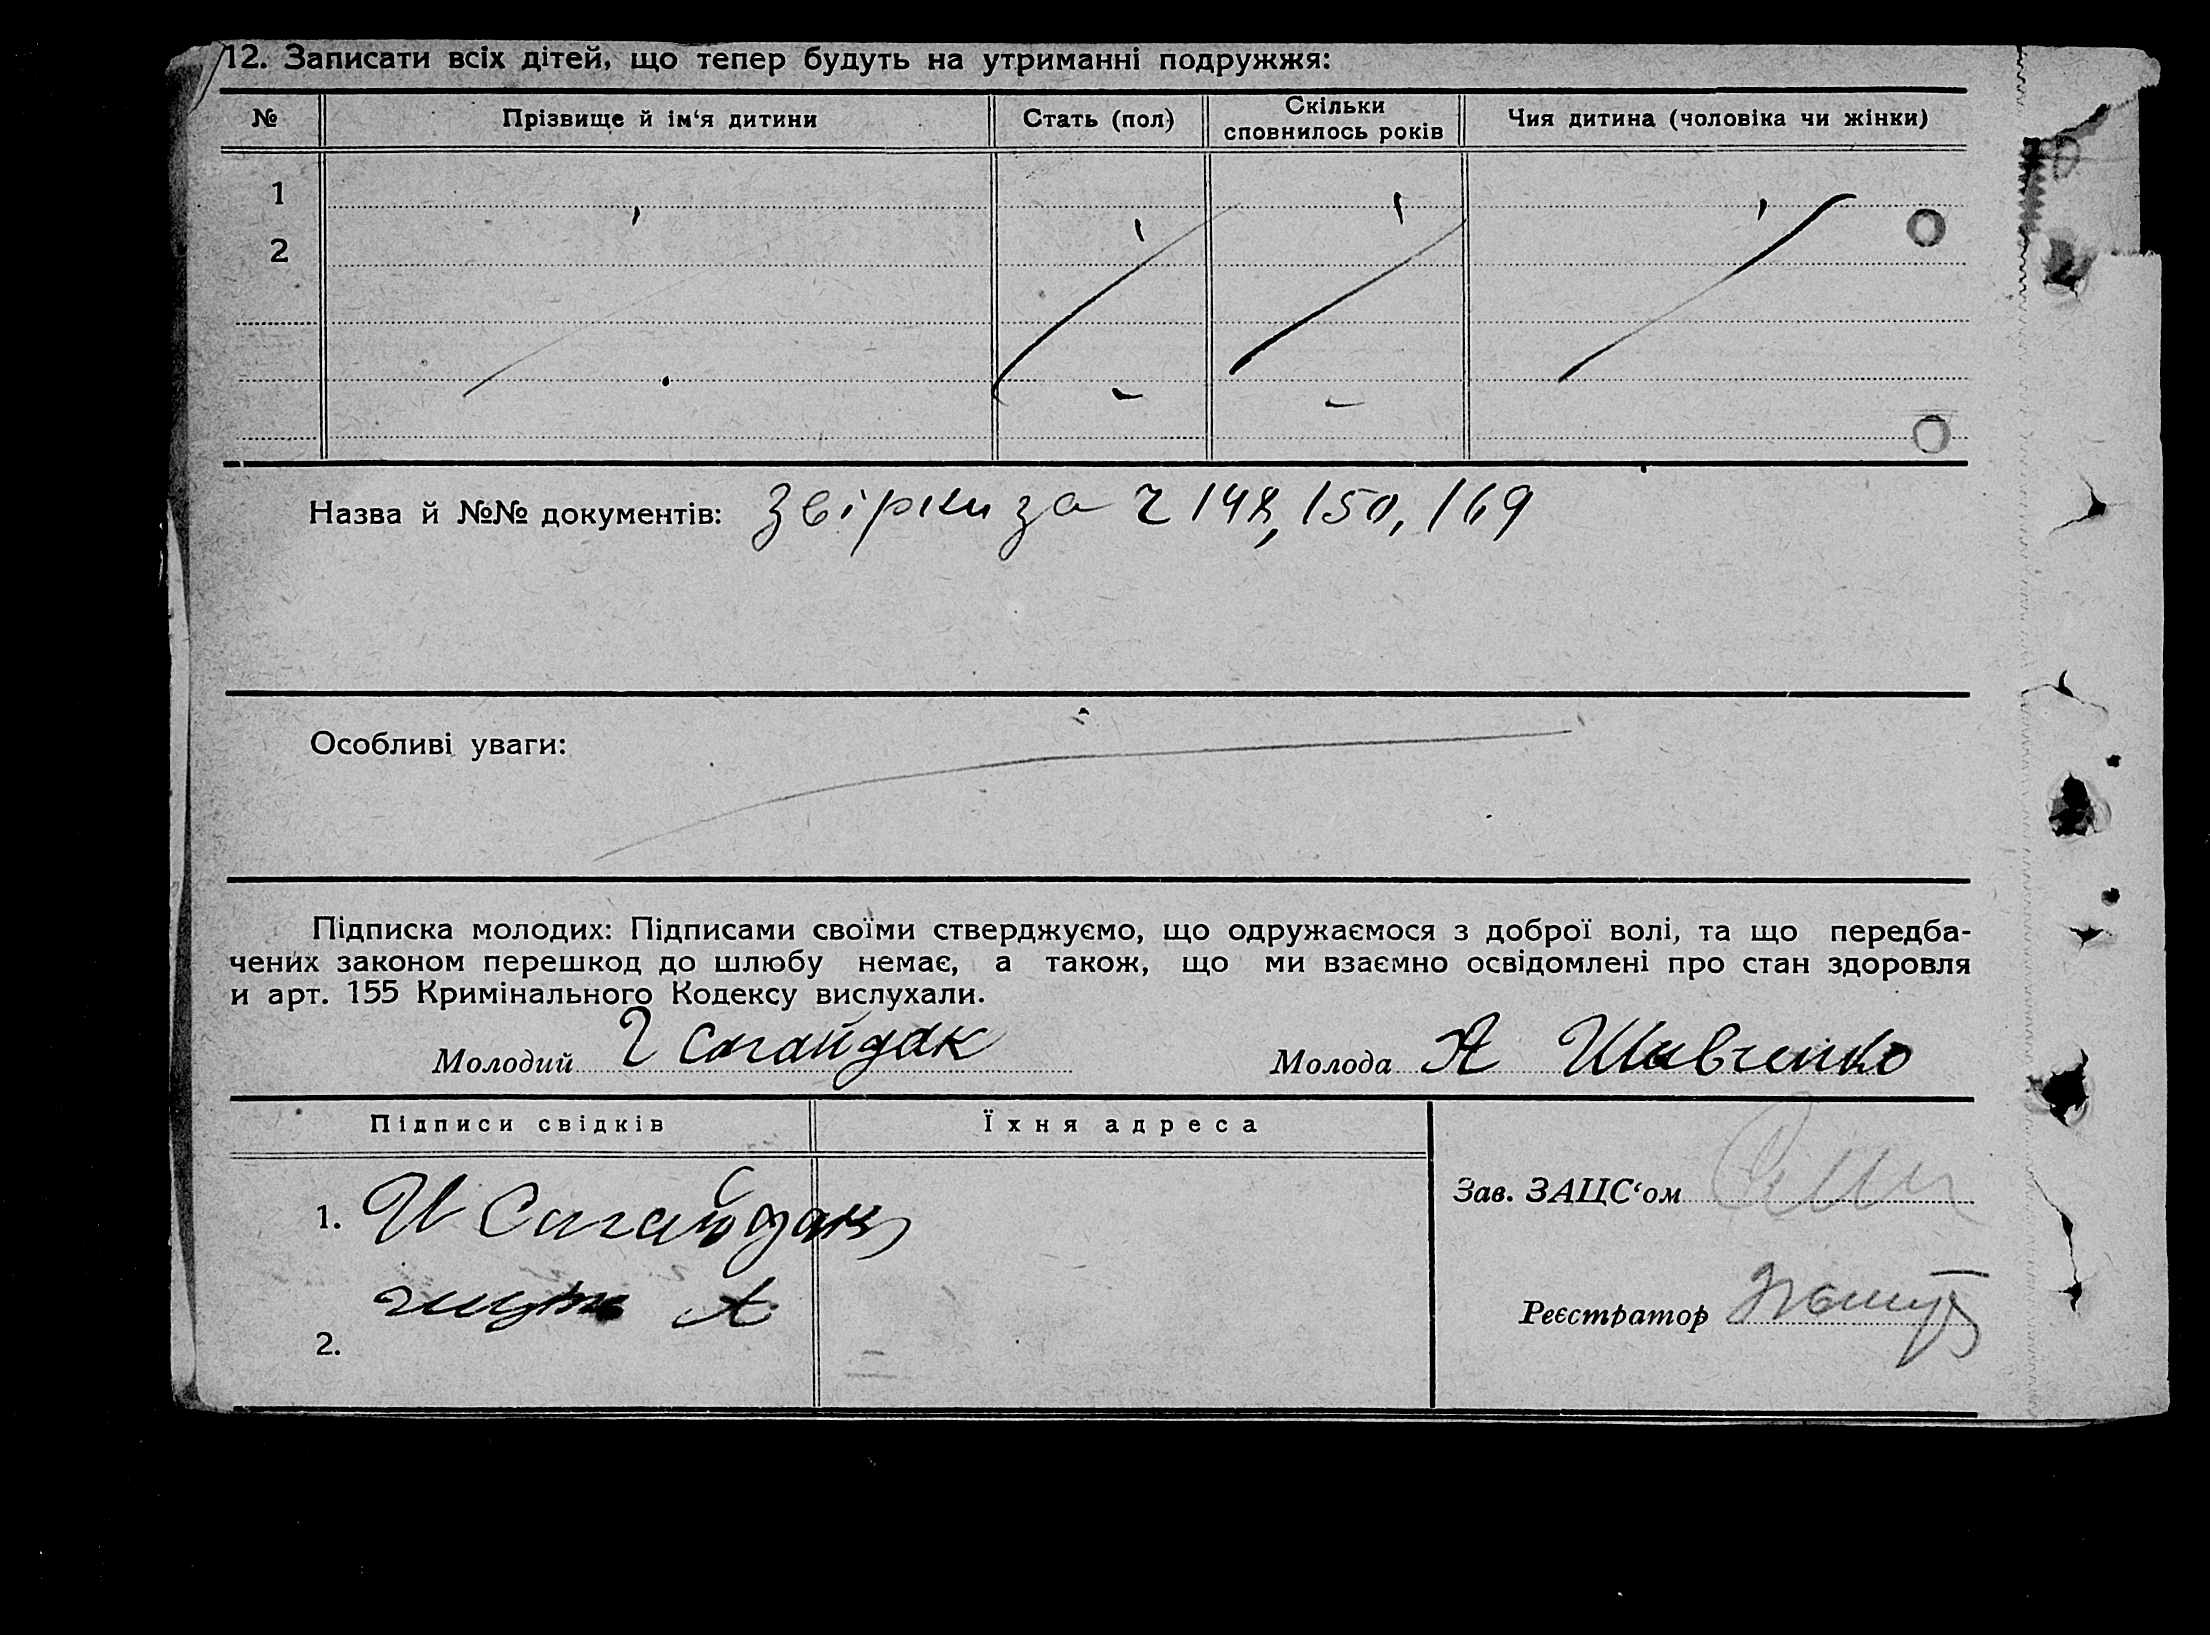 12. Записати всіх дітей, що тепер будуть на утриманні подружжя:
№ Прізвище й ім'я дитини Стать (пол) Скільки сповнилось років Чия дитина (чоловіка чи жінки)
1
2
Назва й №№ документів: Звірки за ч 148, 150, 169
Особливі уваги:
Підписка молодих: Підписами своїми стверджуємо, що одружаємося з доброї волі, та що передба-
чених законом перешкод до шлюбу немає, а також, що ми взаємно освідомлені про стан здоровля
и арт. 155 Кримінального Кодексу вислухали.
Молодий Г Сагайдак Молода А Шевченко
Підписи свідків Їхня адреса
1. И Сагайдак
2.
Зав. ЗАЦС'ом
Реєстратор